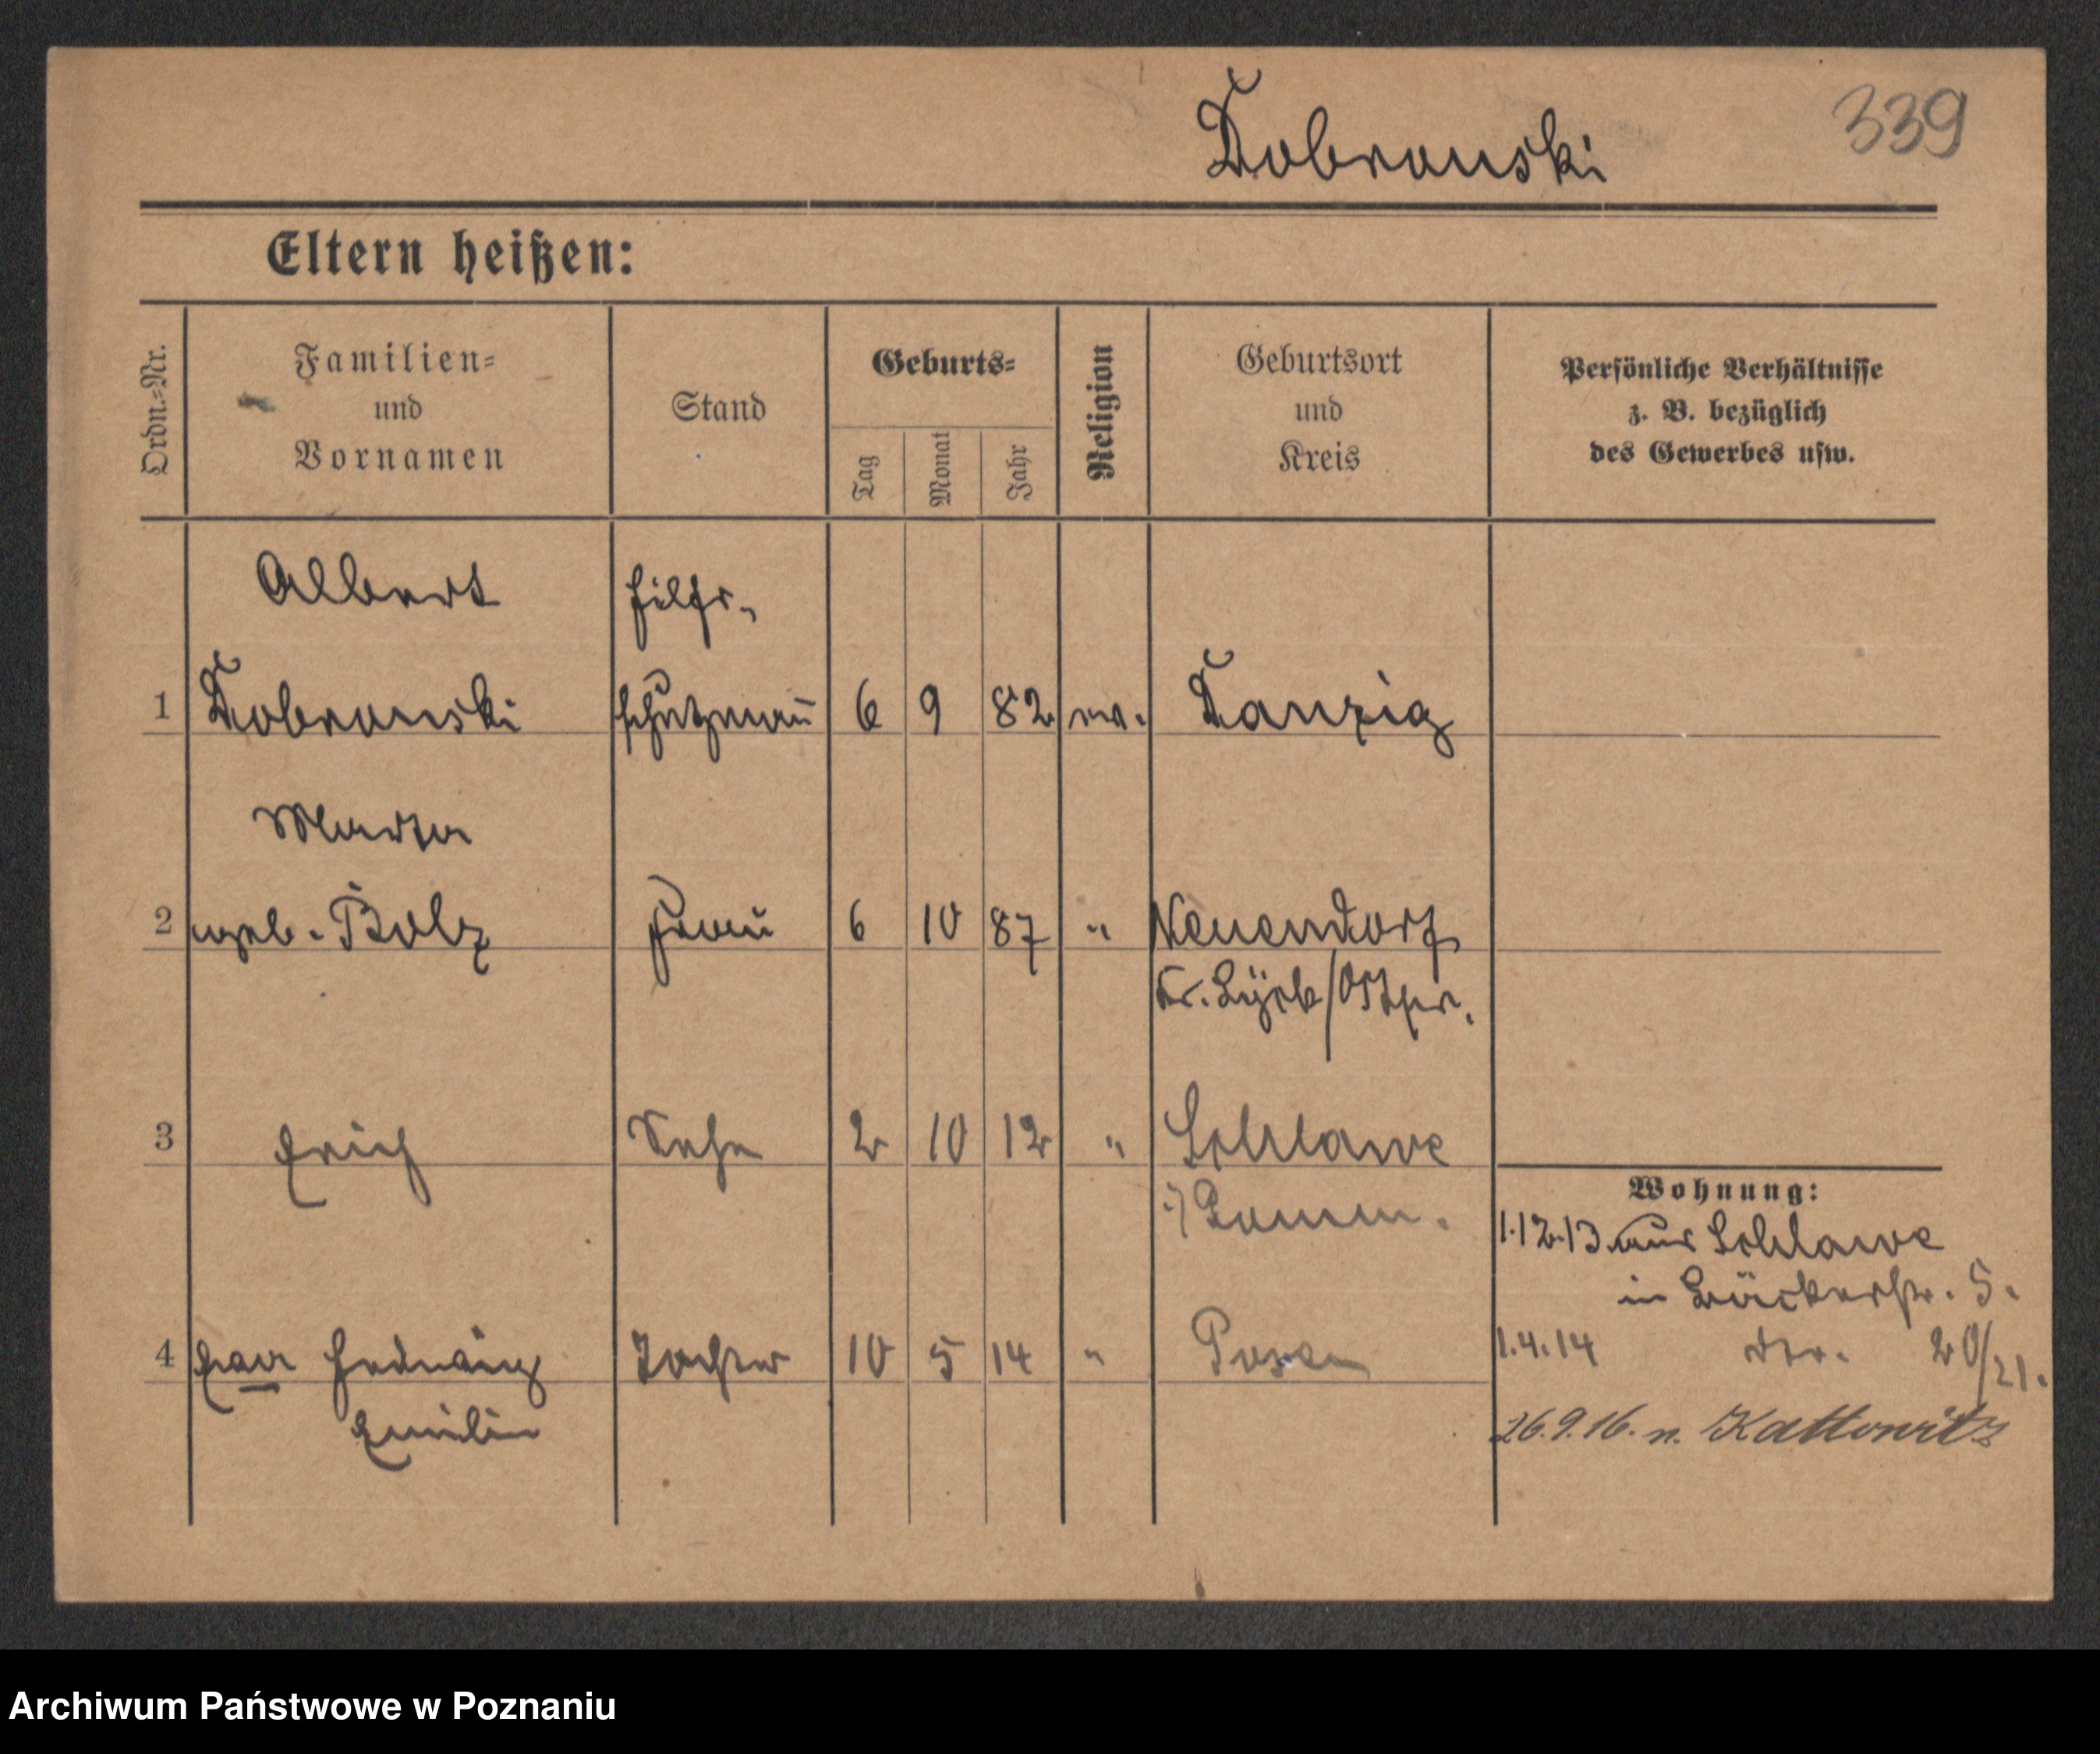 Dobronski
339
Eltern heißen:
Ordn.-Nr.
Familien-
und
Vornamen
Stand
Geburts-
Tag
Monat
Jahr
Religion
Geburtsort
und
Kreis
Persönliche Verhältnisse
z. B. bezüglich
des Gewerbes usw.
Albert
Hilfs-
1 Dobronski Schutzmann 6 9 82 ev. Danzig
Marta
2 geb. Bolz Frau 6 10 87 " Neuendorf
Kr. Lyck/Ostpr.
3 Erich Sohn 2 10 12 " Schlawe
Wohnung:
i/ Pomm.
1.12.13 aus Schlawe
in Bäckerstr. 5.
4 Eva Hedwig Tochter 10 5 14 " Posen
1.4.14 dto. 20/21.
Emilie
26.9.16. n. Kattowitz
Archiwum Państwowe w Poznaniu